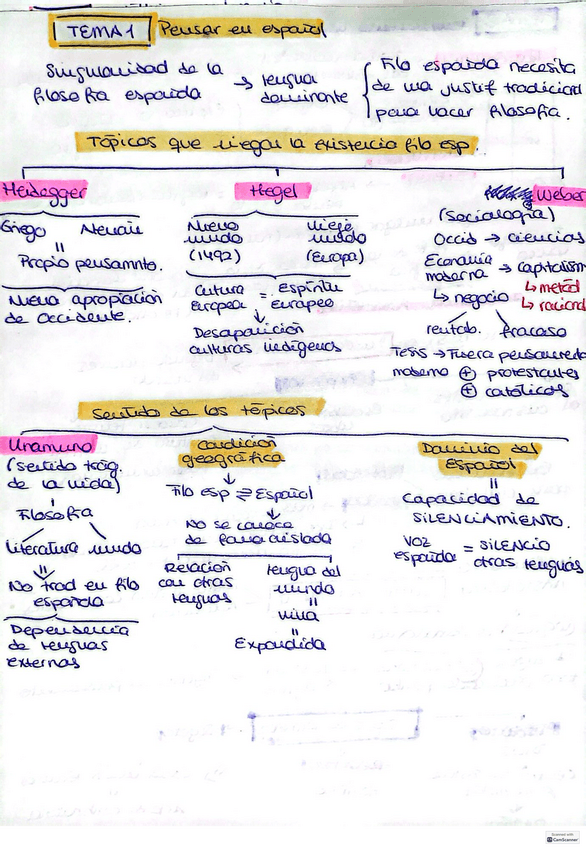 TEMA 1 Pensar en español
Singularidad de la filosofía española → lengua dominante
Filo española necesita de una justif tradicional para hacer filosofía.
Tópicos que niegan la existencia filo esp.
Heidegger
Griego Alemán
=
Propio pensamnto.
Nueva apropiación de Occidente.
Hegel
Nuevo mundo (1492)
Viejo mundo (Europa)
Cultura Europea = Espíritu europeo
↓
Desaparición culturas indígenas
Weber
(sociología)
Occid → ciencias
Economía moderna → capitalism
↳ metód
↳ racional
↳ negocio
rentab. fracaso
Tesis → Fuera pensamiento
moderno + protestantes
+ católicos
Sentido de los tópicos
Unamuno
(sentido trág. de la vida)
Filosofía
Literatura mundo
No trad en filo española
Dependencia de lenguas externas
Condición geográfica
↓
Filo esp ⇄ Español
↓
No se conoce de forma aislada
Relación con otras lenguas
lengua del mundo
=
viva
=
Expandida
Dominio del Español
=
Capacidad de SILENCIAMIENTO.
VOZ española = SILENCIO otras lenguas
Scanned with
CamScanner